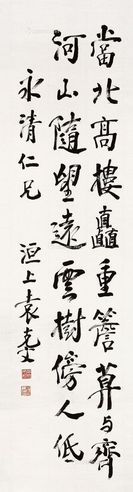 當北高樓矗重簷算与齊
河山隨望遠雲樹傍人低
永清仁兄 洹上袁克文